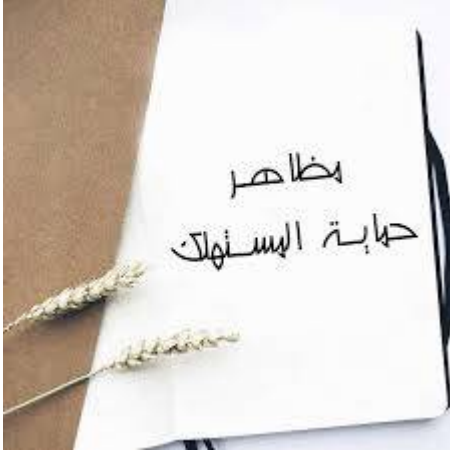 مظاهر
حماية المستهلك